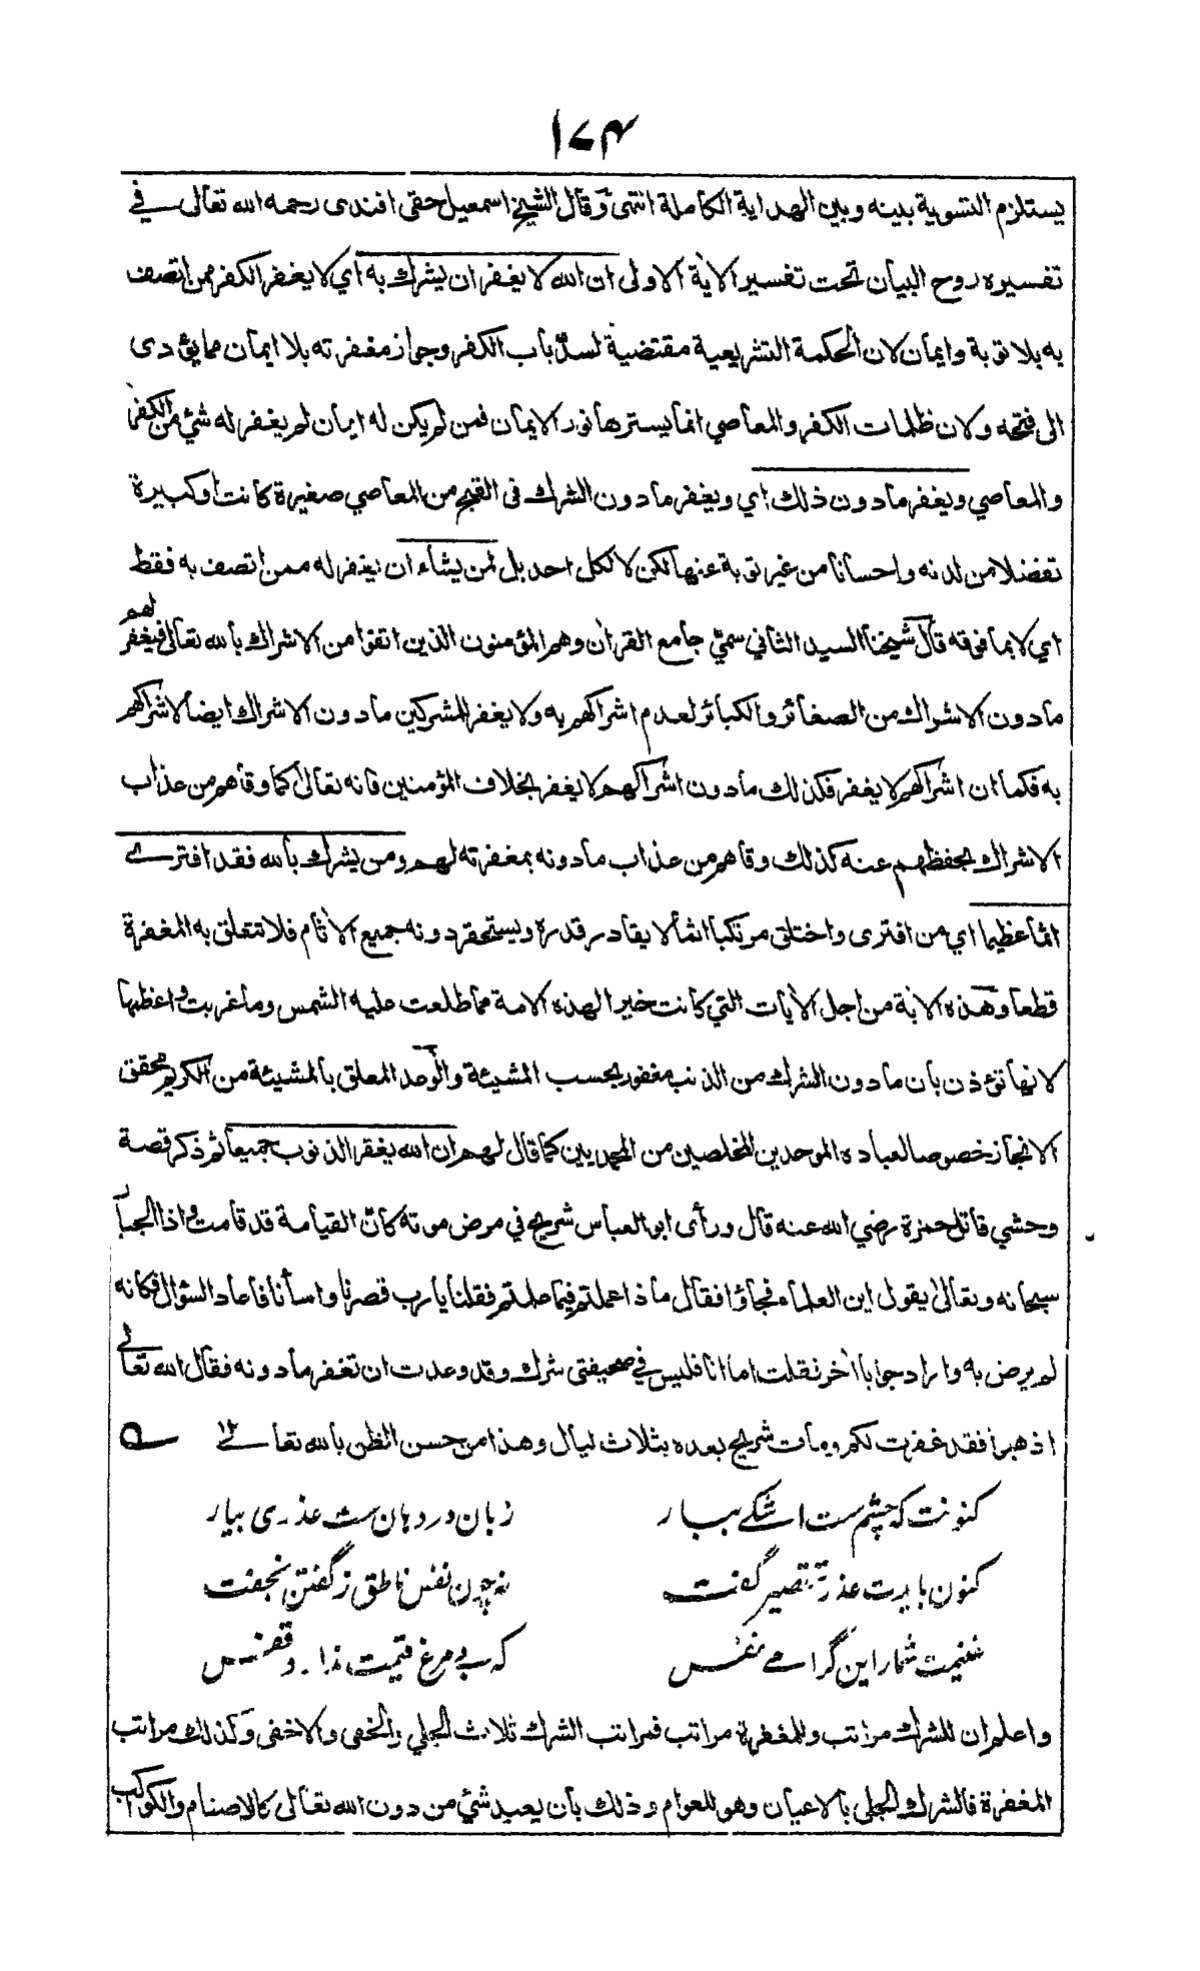 ١٧٣
يستلزم التسوية بينه وبين الهداية الكاملة انتهى وقال الشيخ اسمعيل حقى افندى رحمه الله تعالى في
تفسيره روح البيان تحت تفسير الاية الاولى ان الله لا يغفر ان يشرك به اي لا يغفر الكفر ممن اتصف
به بلا توبة وايمان لان الحكمة التشريعية مقتضية لسد باب الكفر وجواز مغفرته بلا ايمان مما يؤدى
الى فتحه ولان ظلمات الكفر والمعاصي انما يسترها نور الايمان فمن لم يكن له ايمان لم يغفر له شيء من الكفر
والمعاصي ويغفر ما دون ذلك اي ويغفر ما دون الشرك فى القبح من المعاصي صغيرة كانت او كبيرة
تفضلا من لدنه واحسانا من غير توبة عنها لكن لا لكل احد بل لمن يشاء ان يغفر له ممن اتصف به فقط
اي لا بما فوقه قال شيخنا السيد الثاني سمي جامع القران وهم المؤمنون الذين اتقوا من الاشراك بالله تعالى فيغفر لهم
ما دون الاشراك من الصغائر والكبائر لعدم اشراكهم به ولا يغفر للمشركين ما دون الاشراك ايضا لاشراكهم
به فكما ان اشراكهم لا يغفر فكذلك ما دون اشراكهم لا يغفر بخلاف المؤمنين فانه تعالى كما وقاهم من عذاب
الاشراك بحفظهم عنه كذلك وقاهم من عذاب ما دونه بمغفرته لهم ومن يشرك بالله فقد افترى
اثما عظيما اي من افترى واختلق مرتكبا اثما لا يقادر قدره ويستحقر دونه جميع الاثام فلا تتعلق به المغفرة
قطعا وهذه الاية من اجل الايات التي كانت خيرا لهذه الامة مما طلعت عليه الشمس وما غربت واعظمها
لانها تؤذن بان ما دون الشرك من الذنب مغفور بحسب المشيئة والوعد المعلق بالمشيئة من الكريم محقق
الانجاز خصوصا لعباده الموحدين المخلصين من المحمديين كما قال لهم ان الله يغفر الذنوب جميعا ثم ذكر قصة
وحشي قاتل حمزة رضي الله عنه قال ورأى ابو العباس شريح في مرض موته كان القيامة قد قامت واذا الجبار
سبحانه وتعالى يقول اين العلماء فجاؤا فقال ماذا عملتم فيما علمتم فقلنا يا رب قصرنا واسأنا فاعاد السؤال فكانه
لم يرض به واراد جوابا اخر فقلت اما انا فليس في صحيفتى شرك وقد وعدت ان تغفر ما دونه فقال الله تعالى
اذهبوا فقد غفرت لكم ومات شريح بعده بثلاث ليال وهذا من حسن الظن بالله تعالى ١٢
كنونت كه چشم ست اشكے ببار زبان در دهان ست عذرى بيار
كنون بايدت عذر تقصير گفت نه چون نفس ناطق ز گفتن بخفت
غنيمت شمار اين گرامے نفس كه بے مرغ قيمت ندارد قفس
واعلم ان للشرك مراتب وللمغفرة مراتب فمراتب الشرك ثلاث الجلي والخفى والاخفى وكذلك مراتب
المغفرة فالشرك الجلي بالاعيان وهو للعوام وذلك بان يعبد شيئ من دون الله تعالى كالاصنام والكواكب